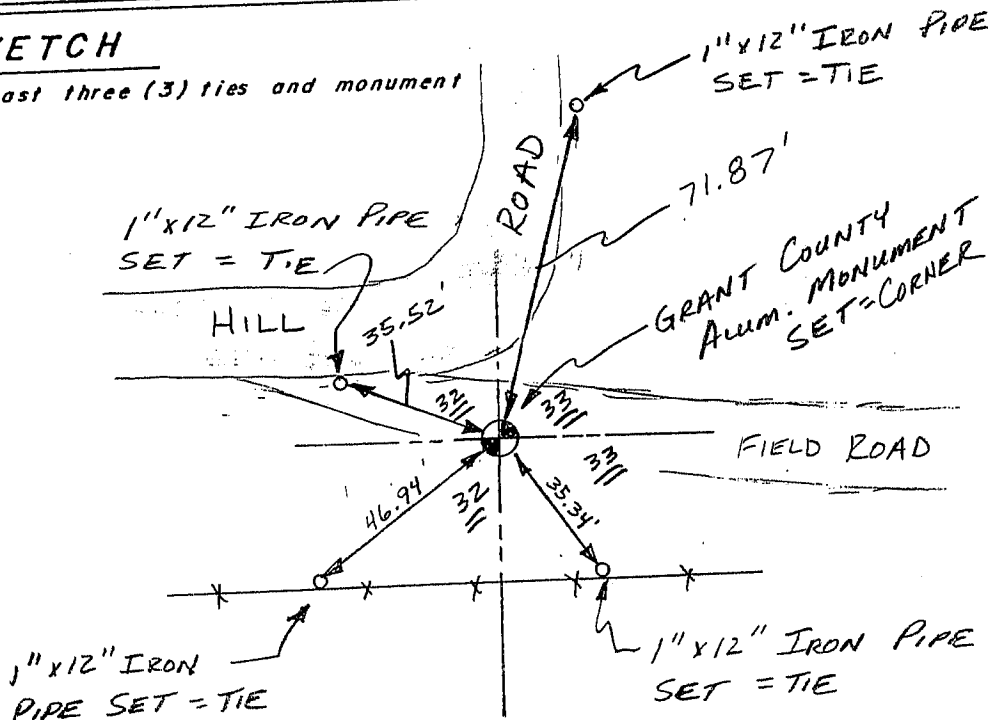 ETCH
ast three (3) ties and monument
1"x12" IRON PIPE
SET = TIE
ROAD
71.87'
1"x12" IRON PIPE
SET = TIE
GRANT COUNTY
ALUM. MONUMENT
SET=CORNER
HILL
35.52'
32
33
FIELD ROAD
33
32
46.94'
35.34'
1"x12" IRON
PIPE SET = TIE
1"x12" IRON PIPE
SET = TIE